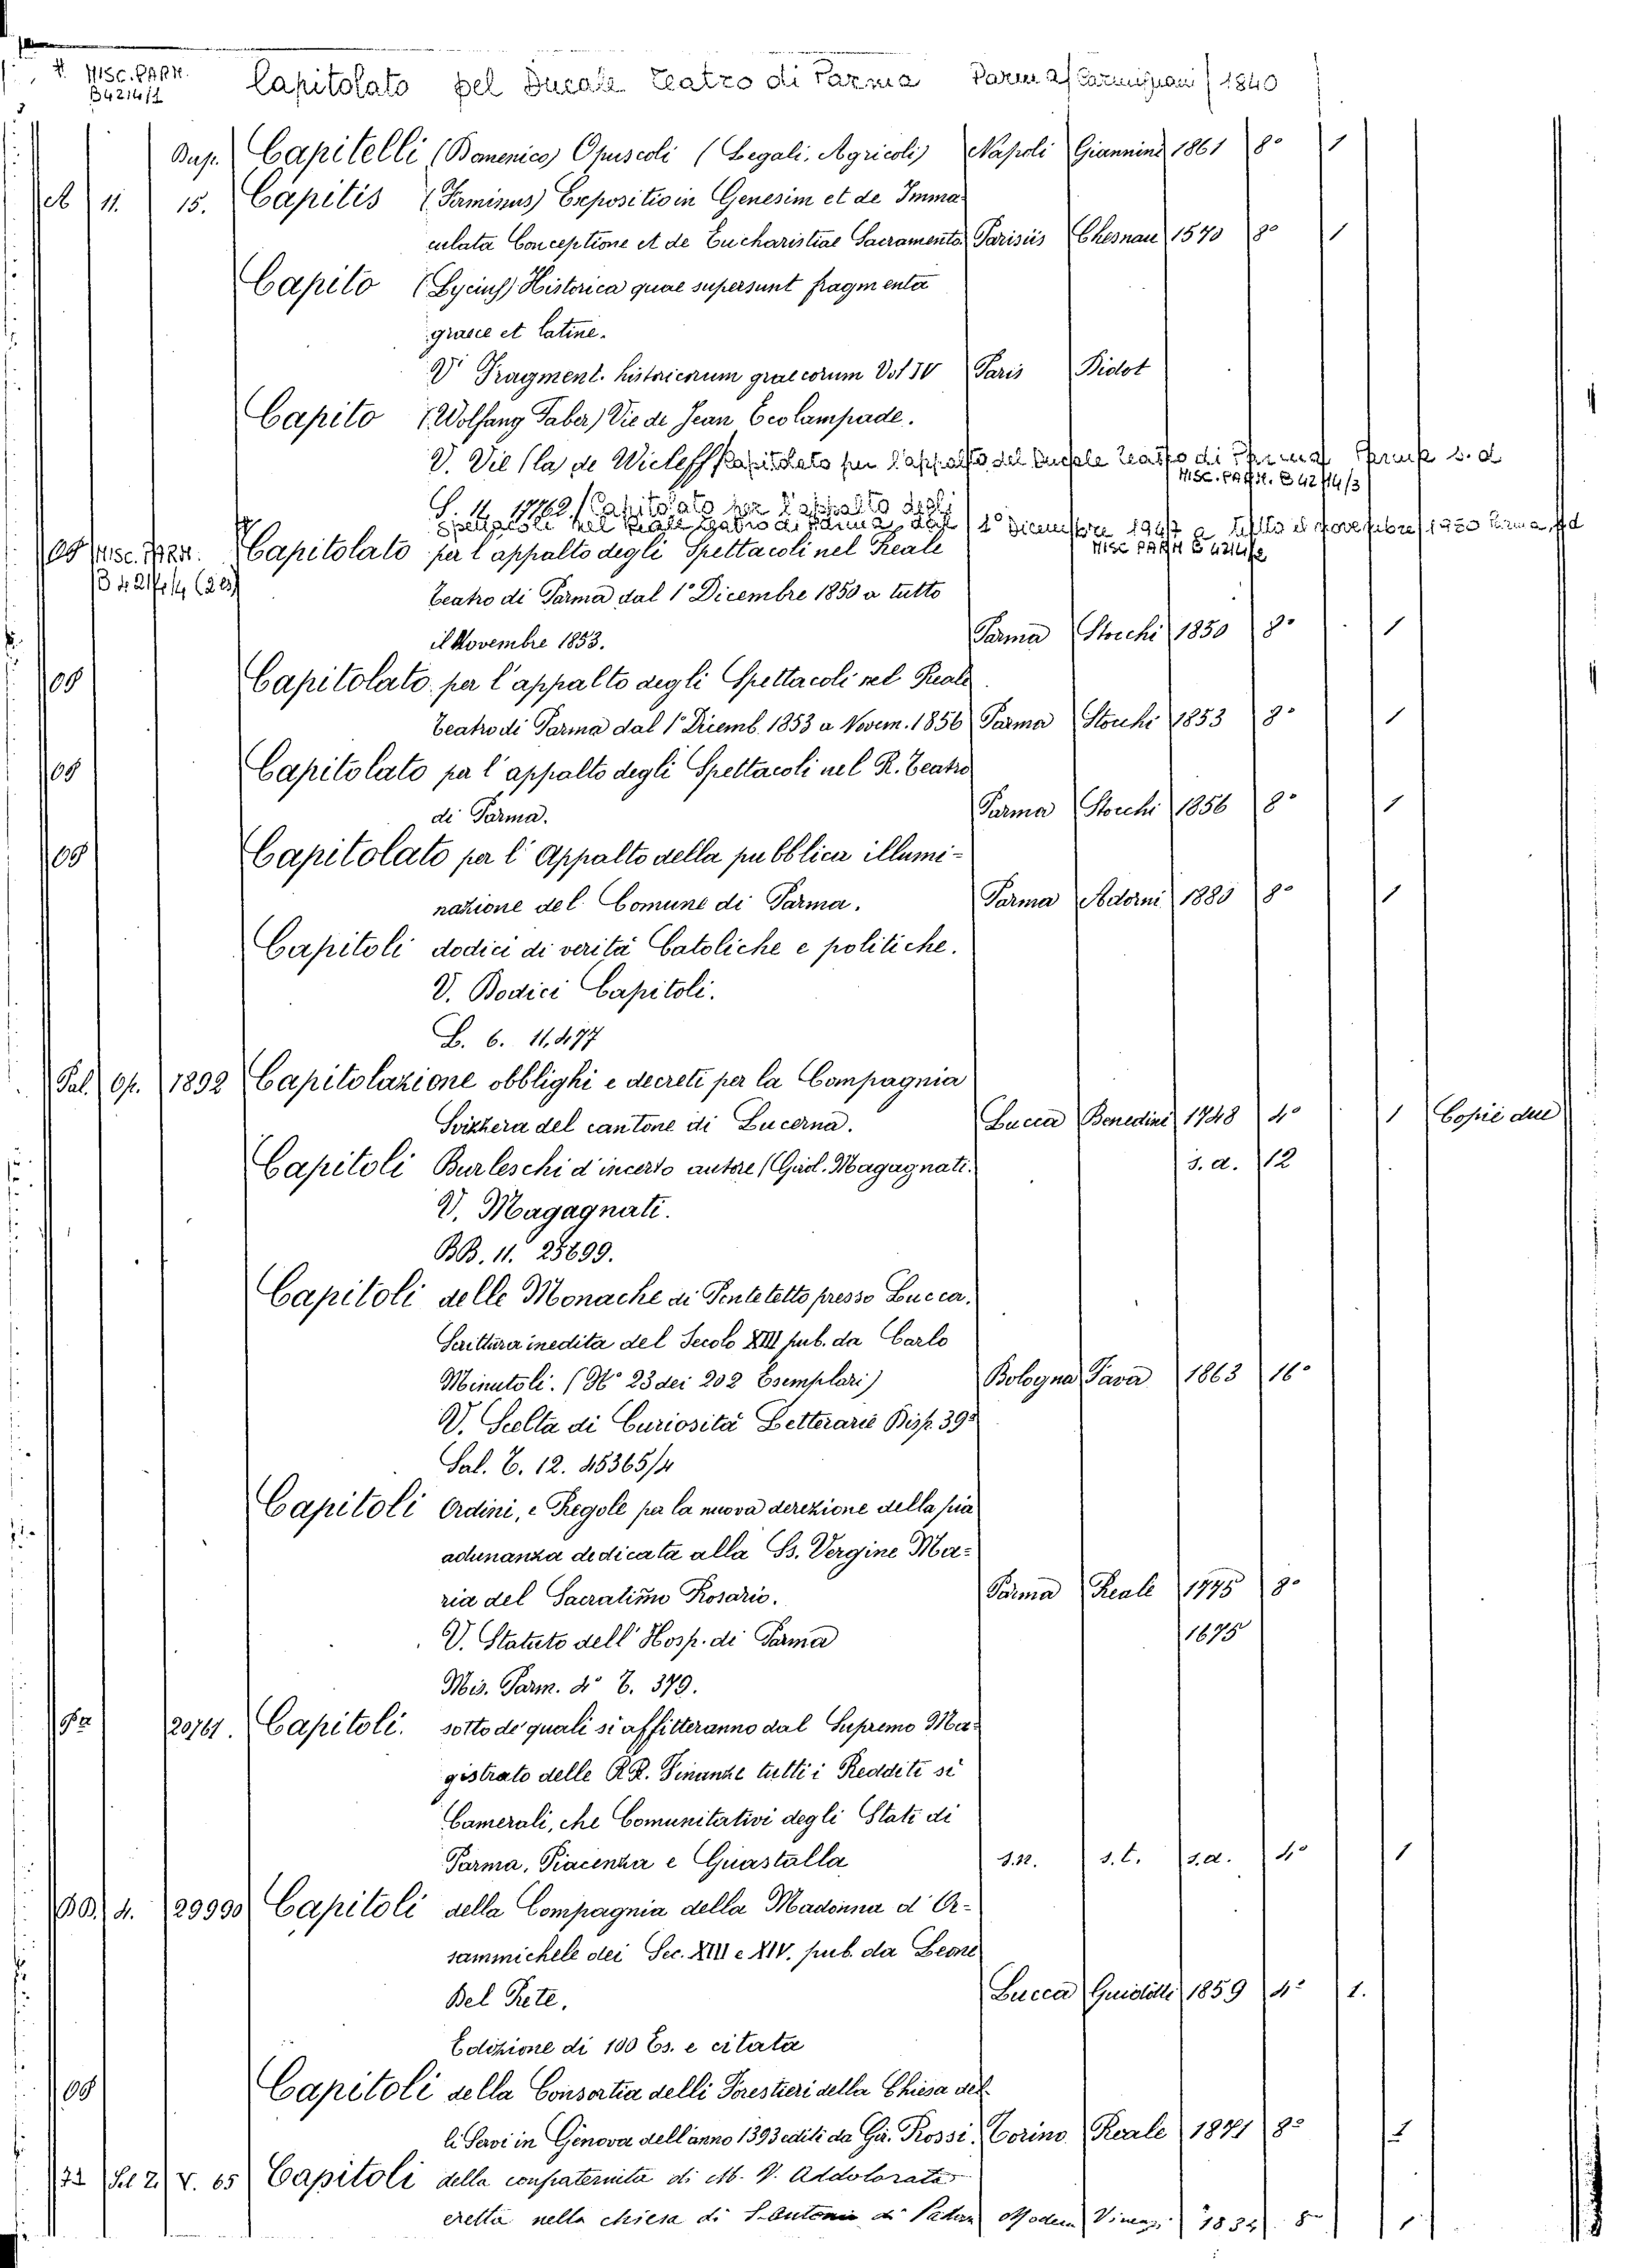 V. MISC. PARM. Capitolato pel Ducale Teatro di Parma Parma Carmignani 1840
B 4214/1
Dup. Capitelli (Domenico) Opuscoli (Legali, Agricoli) Napoli Giannini 1861 8° 1
A 11. 15. Capitis (Firminus) Expositio in Genesim et de Imma-
culata Conceptione et de Eucharistiae Sacramento Parisiis Chesnau 1570 8° 1
Capito (Lycius) Historica quae supersunt fragmenta
graece et latine.
V. Fragment. historicorum graecorum Vol IV Paris Didot
Capito (Wolfang Faber) Vie de Jean Ecolampade.
V. Vie (la) de Wicleff Capitolato per l'appalto del Ducale Teatro di Parma s. d
MISC. PARM. B 4214/3
Capitolato per l'appalto degli
Misc. Parm. Capitolato per l'appalto degli Spettacoli nel Reale
Teatro di Parma dal 1° Dicembre 1850 a tutto
il Novembre 1853. Parma Stocchi 1850 8° 1
Capitolato per l'appalto degli Spettacoli nel Reale
Teatro di Parma dal 1° Dicemb. 1853 a Novem. 1856 Parma Stocchi 1853 8° 1
Capitolato per l'appalto degli Spettacoli nel R. Teatro
di Parma. Parma Stocchi 1856 8° 1
Capitolato per l'Appalto della pubblica illumi-
nazione del Comune di Parma. Parma Adorni 1880 8° 1
Capitoli dodici di verità Catoliche e politiche.
V. Dodici Capitoli.
L. 6. 11,477
Pal. Op. 1892 Capitolazione obblighi e decreti per la Compagnia
Svizzera del cantone di Lucerna. Lucca Benedini 1748 4° 1 Copie due
Capitoli Burleschi d'incerto autore (Girol. Magagnati. s. d. 12
V. Magagnati.
BB. 11. 25699.
Capitoli delle Monache di Pontetetto presso Lucca.
Scrittura inedita del Secolo XIII pub. da Carlo
Minutoli. (N° 23 dei 202 Esemplari) Bologna Fava 1863 16°
V. Scelta di Curiosità Letterarie Disp. 39ª
Sal. E. 12. 45365/4
Capitoli Ordini, e Regole per la nuova derezione della pia
adunanza dedicata alla SS. Vergine Ma-
ria del Sacratimo Rosario. Parma Reale 1775 8°
V. Statuto dell' Hosp. di Parma 1675
Mis. Parm. 4° E. 379.
20761. Capitoli. sotto de' quali si affitteranno dal Supremo Ma-
gistrato delle RR. Finanze tutti i Redditi si
Camerali, che Comunitativi degli Stati di
Parma, Piacenza e Guastalla s.n. s.t. s.d. 4° 1
BB. 4. 29990 Capitoli della Compagnia della Madonna d'Or-
sammichele dei Sec. XIII e XIV. pub. da Leone
Del Prete. Lucca Guidotti 1859 4° 1.
Edizione di 100 Es. e citata
Capitoli della Consortia delli Forestieri della Chiesa del-
li Servi in Genova dell'anno 1393 editi da Gir. Rossi. Torino Reale 1871 8° 1
Sel 2. V. 65 Capitoli della confraternita di M. V. Addolorata
eretta nella chiesa di S. Antonio di Padova Modena Vincenzi 1834 8° 1